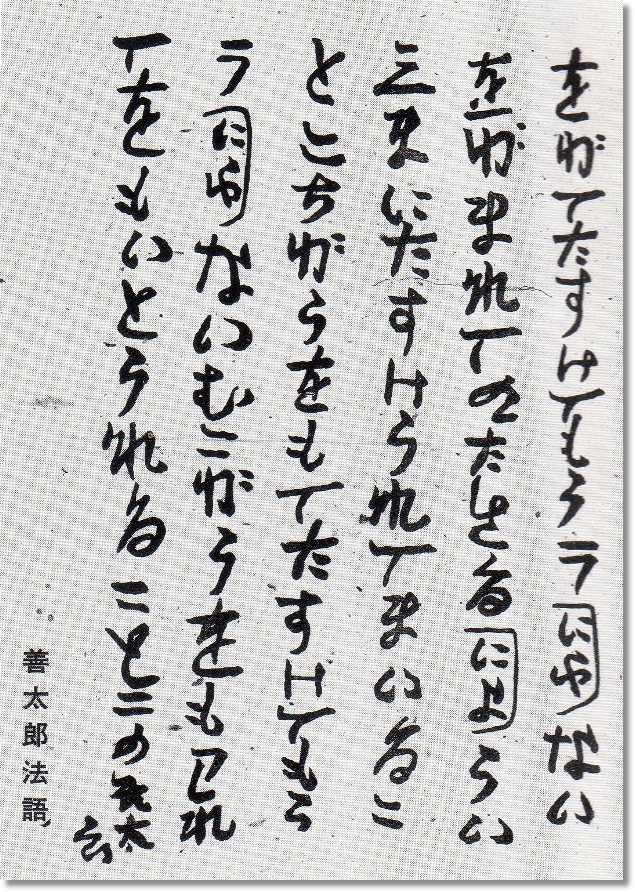 をがてたすけてもらラにやない
をがまれてくたさるによらい
三まにたすけられてまいるこ
とこちがらをもてたすけてもら
ラにやないむこがらをもワれ
てをもいとられることこの善太
郎
善太郎法語